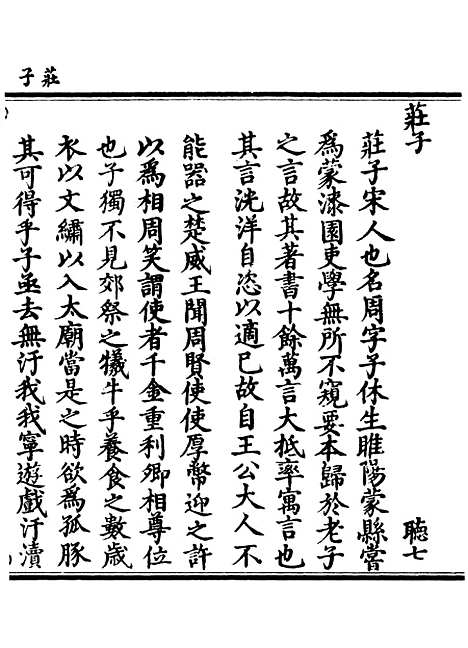 莊子
莊子
聽七
莊子宋人也名周字子休生睢陽蒙縣嘗
爲蒙漆園吏學無所不窺要本歸於老子
之言故其著書十餘萬言大柢率寓言也
其言洸洋自恣以適已故自王公大人不
能器之楚威王聞周賢使使厚幣迎之許
以爲相周笑謂使者千金重利卿相尊位
也子獨不見郊祭之犧牛乎養食之數歲
衣以文繡以入太廟當是之時欲爲孤豚
其可得乎子亟去無汙我我寧遊戲汙瀆